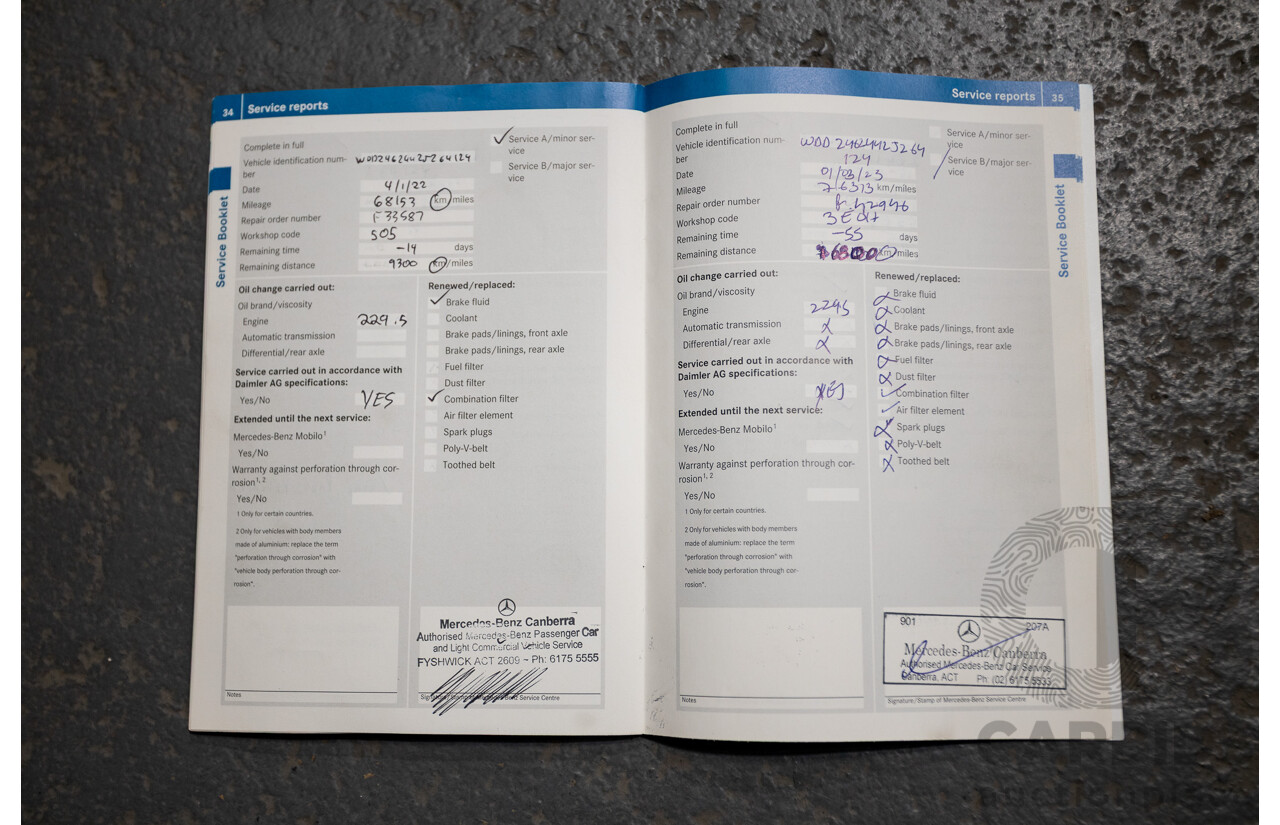 34 Service reports
Service Booklet
Complete in full
Vehicle identification num-
ber WDD2462442J264124
Date 4/1/22
Mileage 68153 km/miles
Repair order number F33587
Workshop code 505
Remaining time -14 days
Remaining distance 9300 km/miles
✓ Service A/minor ser-
vice
Service B/major ser-
vice
Oil change carried out:
Oil brand/viscosity
Engine 229.5
Automatic transmission
Differential/rear axle
Service carried out in accordance with
Daimler AG specifications:
Yes/No YES
Extended until the next service:
Mercedes-Benz Mobilo1
Yes/No
Warranty against perforation through cor-
rosion1, 2
Yes/No
1 Only for certain countries.
2 Only for vehicles with body members
made of aluminium: replace the term
"perforation through corrosion" with
"vehicle body perforation through cor-
rosion".
Renewed/replaced:
✓ Brake fluid
Coolant
Brake pads/linings, front axle
Brake pads/linings, rear axle
Fuel filter
Dust filter
✓ Combination filter
Air filter element
Spark plugs
Poly-V-belt
Toothed belt
Notes
Mercedes-Benz Canberra
Authorised Mercedes-Benz Passenger Car
and Light Commercial Vehicle Service
FYSHWICK ACT 2609 ~ Ph: 6175 5555
Signature/Stamp of Mercedes-Benz Service Centre
Service reports 35
Service Booklet
Complete in full
Vehicle identification num-
ber WDD2462442J264
124
Date 01/03/23
Mileage 76373 km/miles
Repair order number
Workshop code
Remaining time -55 days
Remaining distance km/miles
Service A/minor ser-
vice
Service B/major ser-
vice
Oil change carried out:
Oil brand/viscosity
Engine 2295
Automatic transmission X
Differential/rear axle X
Service carried out in accordance with
Daimler AG specifications:
Yes/No YES
Extended until the next service:
Mercedes-Benz Mobilo1
Yes/No
Warranty against perforation through cor-
rosion1, 2
Yes/No
1 Only for certain countries.
2 Only for vehicles with body members
made of aluminium: replace the term
"perforation through corrosion" with
"vehicle body perforation through cor-
rosion".
Renewed/replaced:
X Brake fluid
X Coolant
X Brake pads/linings, front axle
X Brake pads/linings, rear axle
X Fuel filter
X Dust filter
✓ Combination filter
✓ Air filter element
X Spark plugs
X Poly-V-belt
X Toothed belt
Notes
901 207A
Mercedes-Benz Canberra
Authorised Mercedes-Benz Car Service
Canberra, ACT Ph: (02) 6175 5555
Signature/Stamp of Mercedes-Benz Service Centre